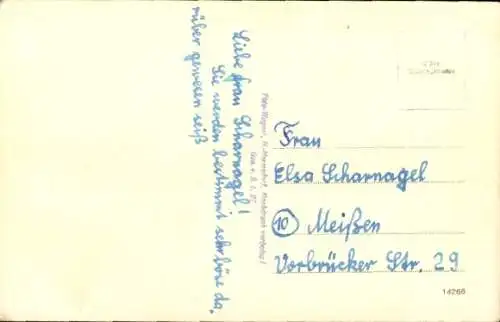 Liebe Frau Scharnagel!
Sie werden bestimmt sehr böse da-
rüber gewesen sein
Frau
Elsa Scharnagel
(10) Meißen
Vorbrücker Str. 29
14266